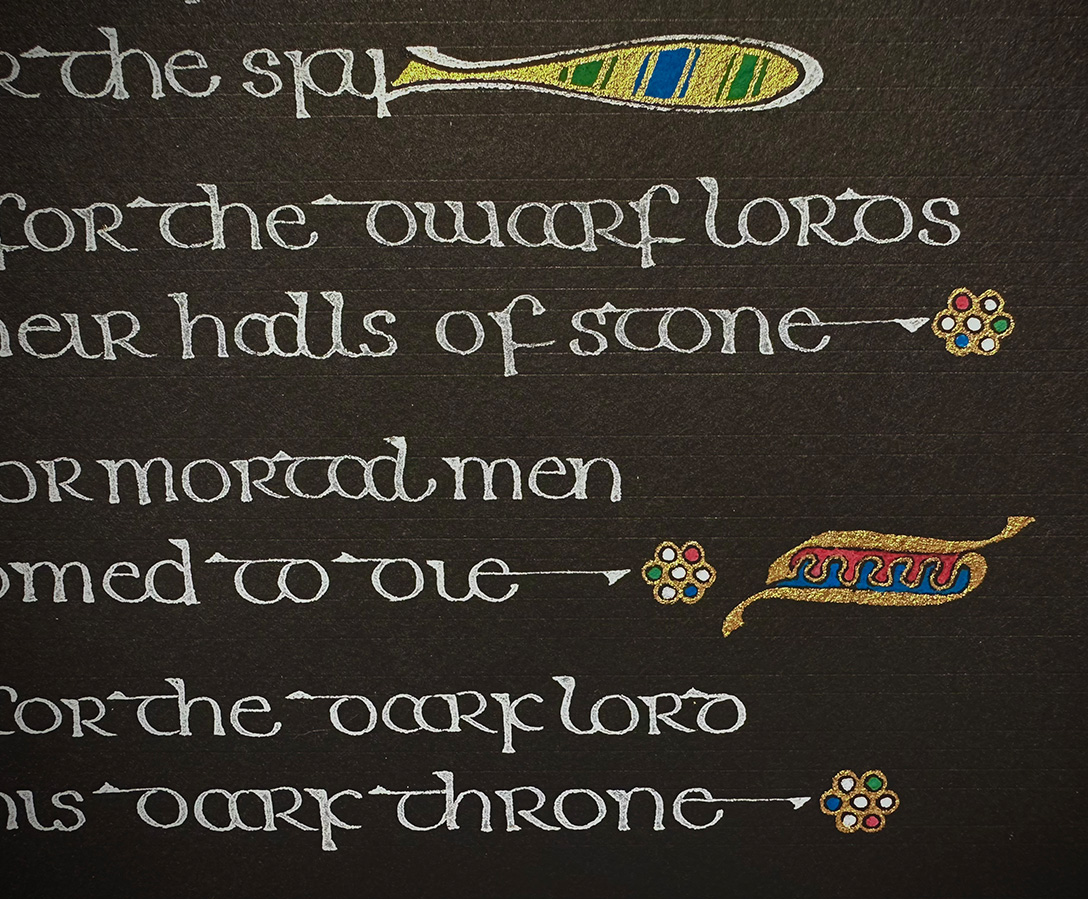 r the sky
for the dwarf lords
heir halls of stone
or mortal men
omed to die
for the dark lord
his dark throne